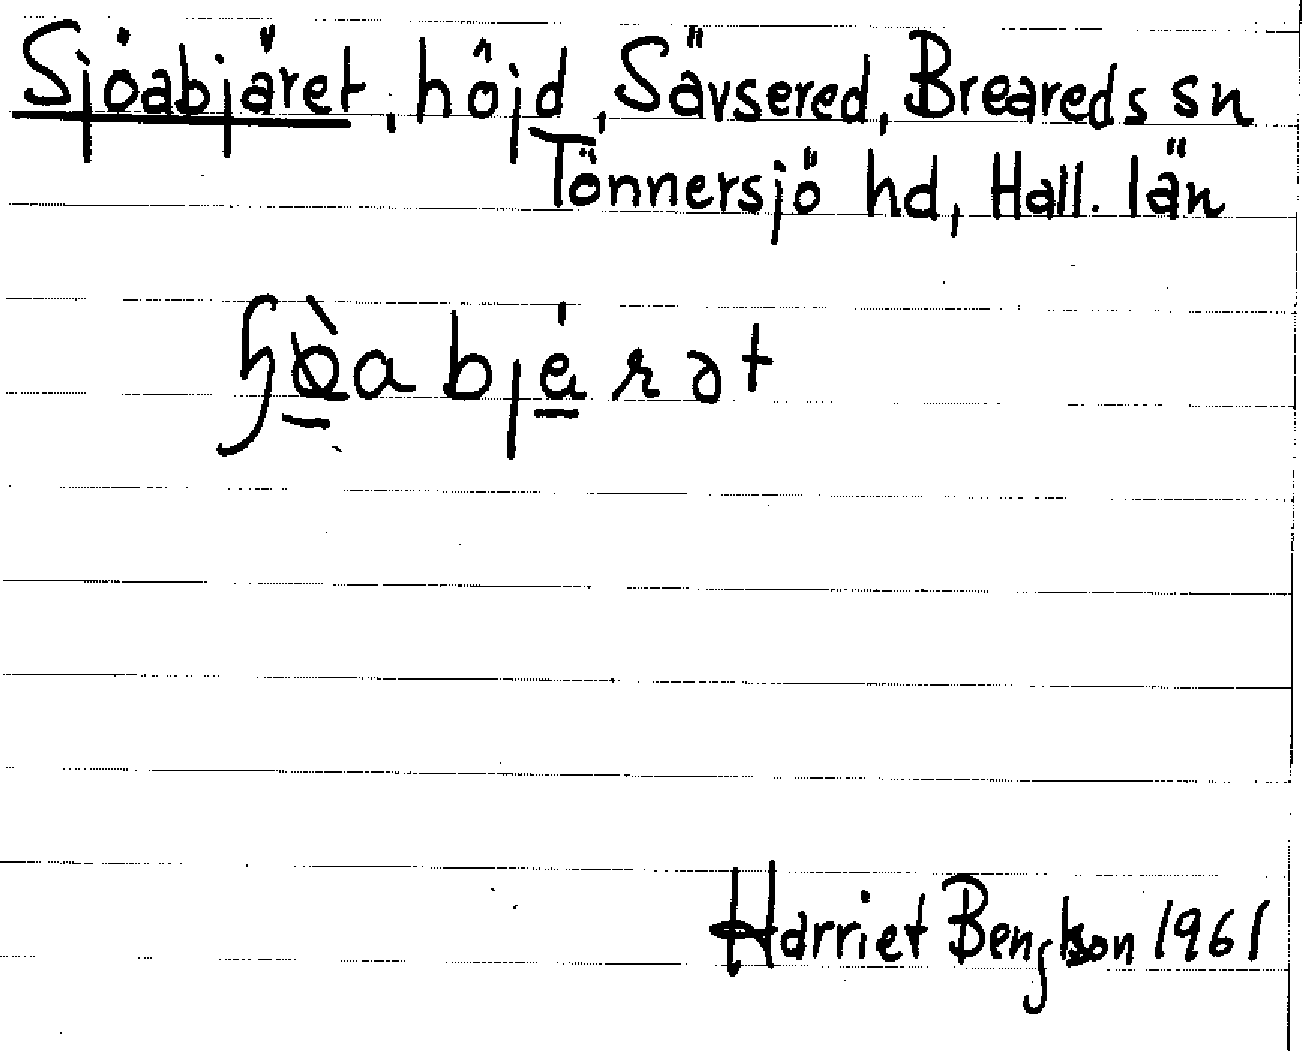 Sjöabjäret, höjd, Sävsered, Breareds sn
Tönnersjö hd, Hall. län
ɧö̀abjérət
Harriet Bengtson 1961